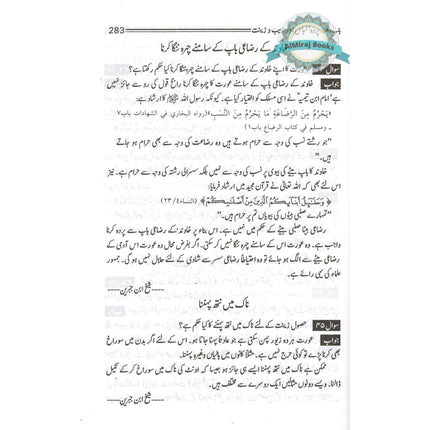 283
AlMiraj Books
خاوند کے رضاعی باپ کے سامنے چہرہ ننگا کرنا
سوال ۴۴ عورت کا اپنے خاوند کے رضاعی باپ کے سامنے چہرہ ننگا کرنا کیا حکم رکھتا ہے؟
جواب خاوند کے رضاعی باپ کے سامنے عورت کا چہرہ ننگا کرنا راجح قول کی رو سے جائز نہیں
ہے امام ابن تیمیہ نے اسی مسلک کو اختیار کیا ہے۔ کیونکہ رسول اللہ ﷺ کا ارشاد ہے:
«يَحْرُمُ مِنَ الرَّضَاعَةِ مَا يَحْرُمُ مِنَ النَّسَبِ» (رواه البخاري في الشهادات ٧
ومسلم في كتاب الرضاع باب ١)
"جو رشتے نسب کی وجہ سے حرام ہوتے ہیں وہ رضاعت کی وجہ سے بھی حرام ہو جاتے
ہیں۔"
خاوند کا باپ بیٹے کی بیوی پر نسب کی وجہ سے حرام نہیں بلکہ سسرالی رشتہ کی وجہ سے حرام ہے۔ نیز
اس لئے بھی کہ اللہ تعالیٰ نے قرآن مجید میں ارشاد فرمایا:
﴿وَحَلَائِلُ أَبْنَائِكُمُ الَّذِينَ مِنْ أَصْلَابِكُمْ﴾ (النساء٤/ ٢٣)
"تمہارے صلبی بیٹوں کی بیویاں تم پر حرام ہیں۔"
رضاعی بیٹا صلبی بیٹے کے حکم میں نہیں ہے۔ اس بناء پر خاوند کے رضاعی باپ سے پردہ کرنا
واجب ہے۔ وہ عورت اس کے سامنے چہرہ ننگا نہیں کر سکتی۔ اگر بفرض محال وہ عورت اس آدمی کے
رضاعی بیٹے سے الگ ہو جائے تو وہ احتیاطاً رضاعی سسر سے شادی کے لئے حلال نہیں ہو گی۔ جمہور
علماء کی یہی رائے ہے۔
شیخ ابن جبرین
ناک میں نتھ پہننا
سوال ۴۵ حصول زینت کے لئے ناک میں نتھ پہننے کا کیا حکم ہے؟
جواب عورت ہر وہ زیور پہن سکتی ہے جو عادتاً پہنا جاتا ہو۔ اس کے لئے اگر بدن میں سوراخ
بھی کرنا پڑے تو کوئی حرج نہیں ہے۔ مثلاً کانوں میں بالیاں وغیرہ پہننا۔
ممکن ہے ناک میں نتھ پہننا ایسے ہی جائز ہو جیسا کہ اونٹ کی ناک میں سوراخ کر کے نکیل
ڈالنا۔ ویسے دونوں مثالیں ایک دوسرے سے مختلف ہیں۔
شیخ ابن جبرین